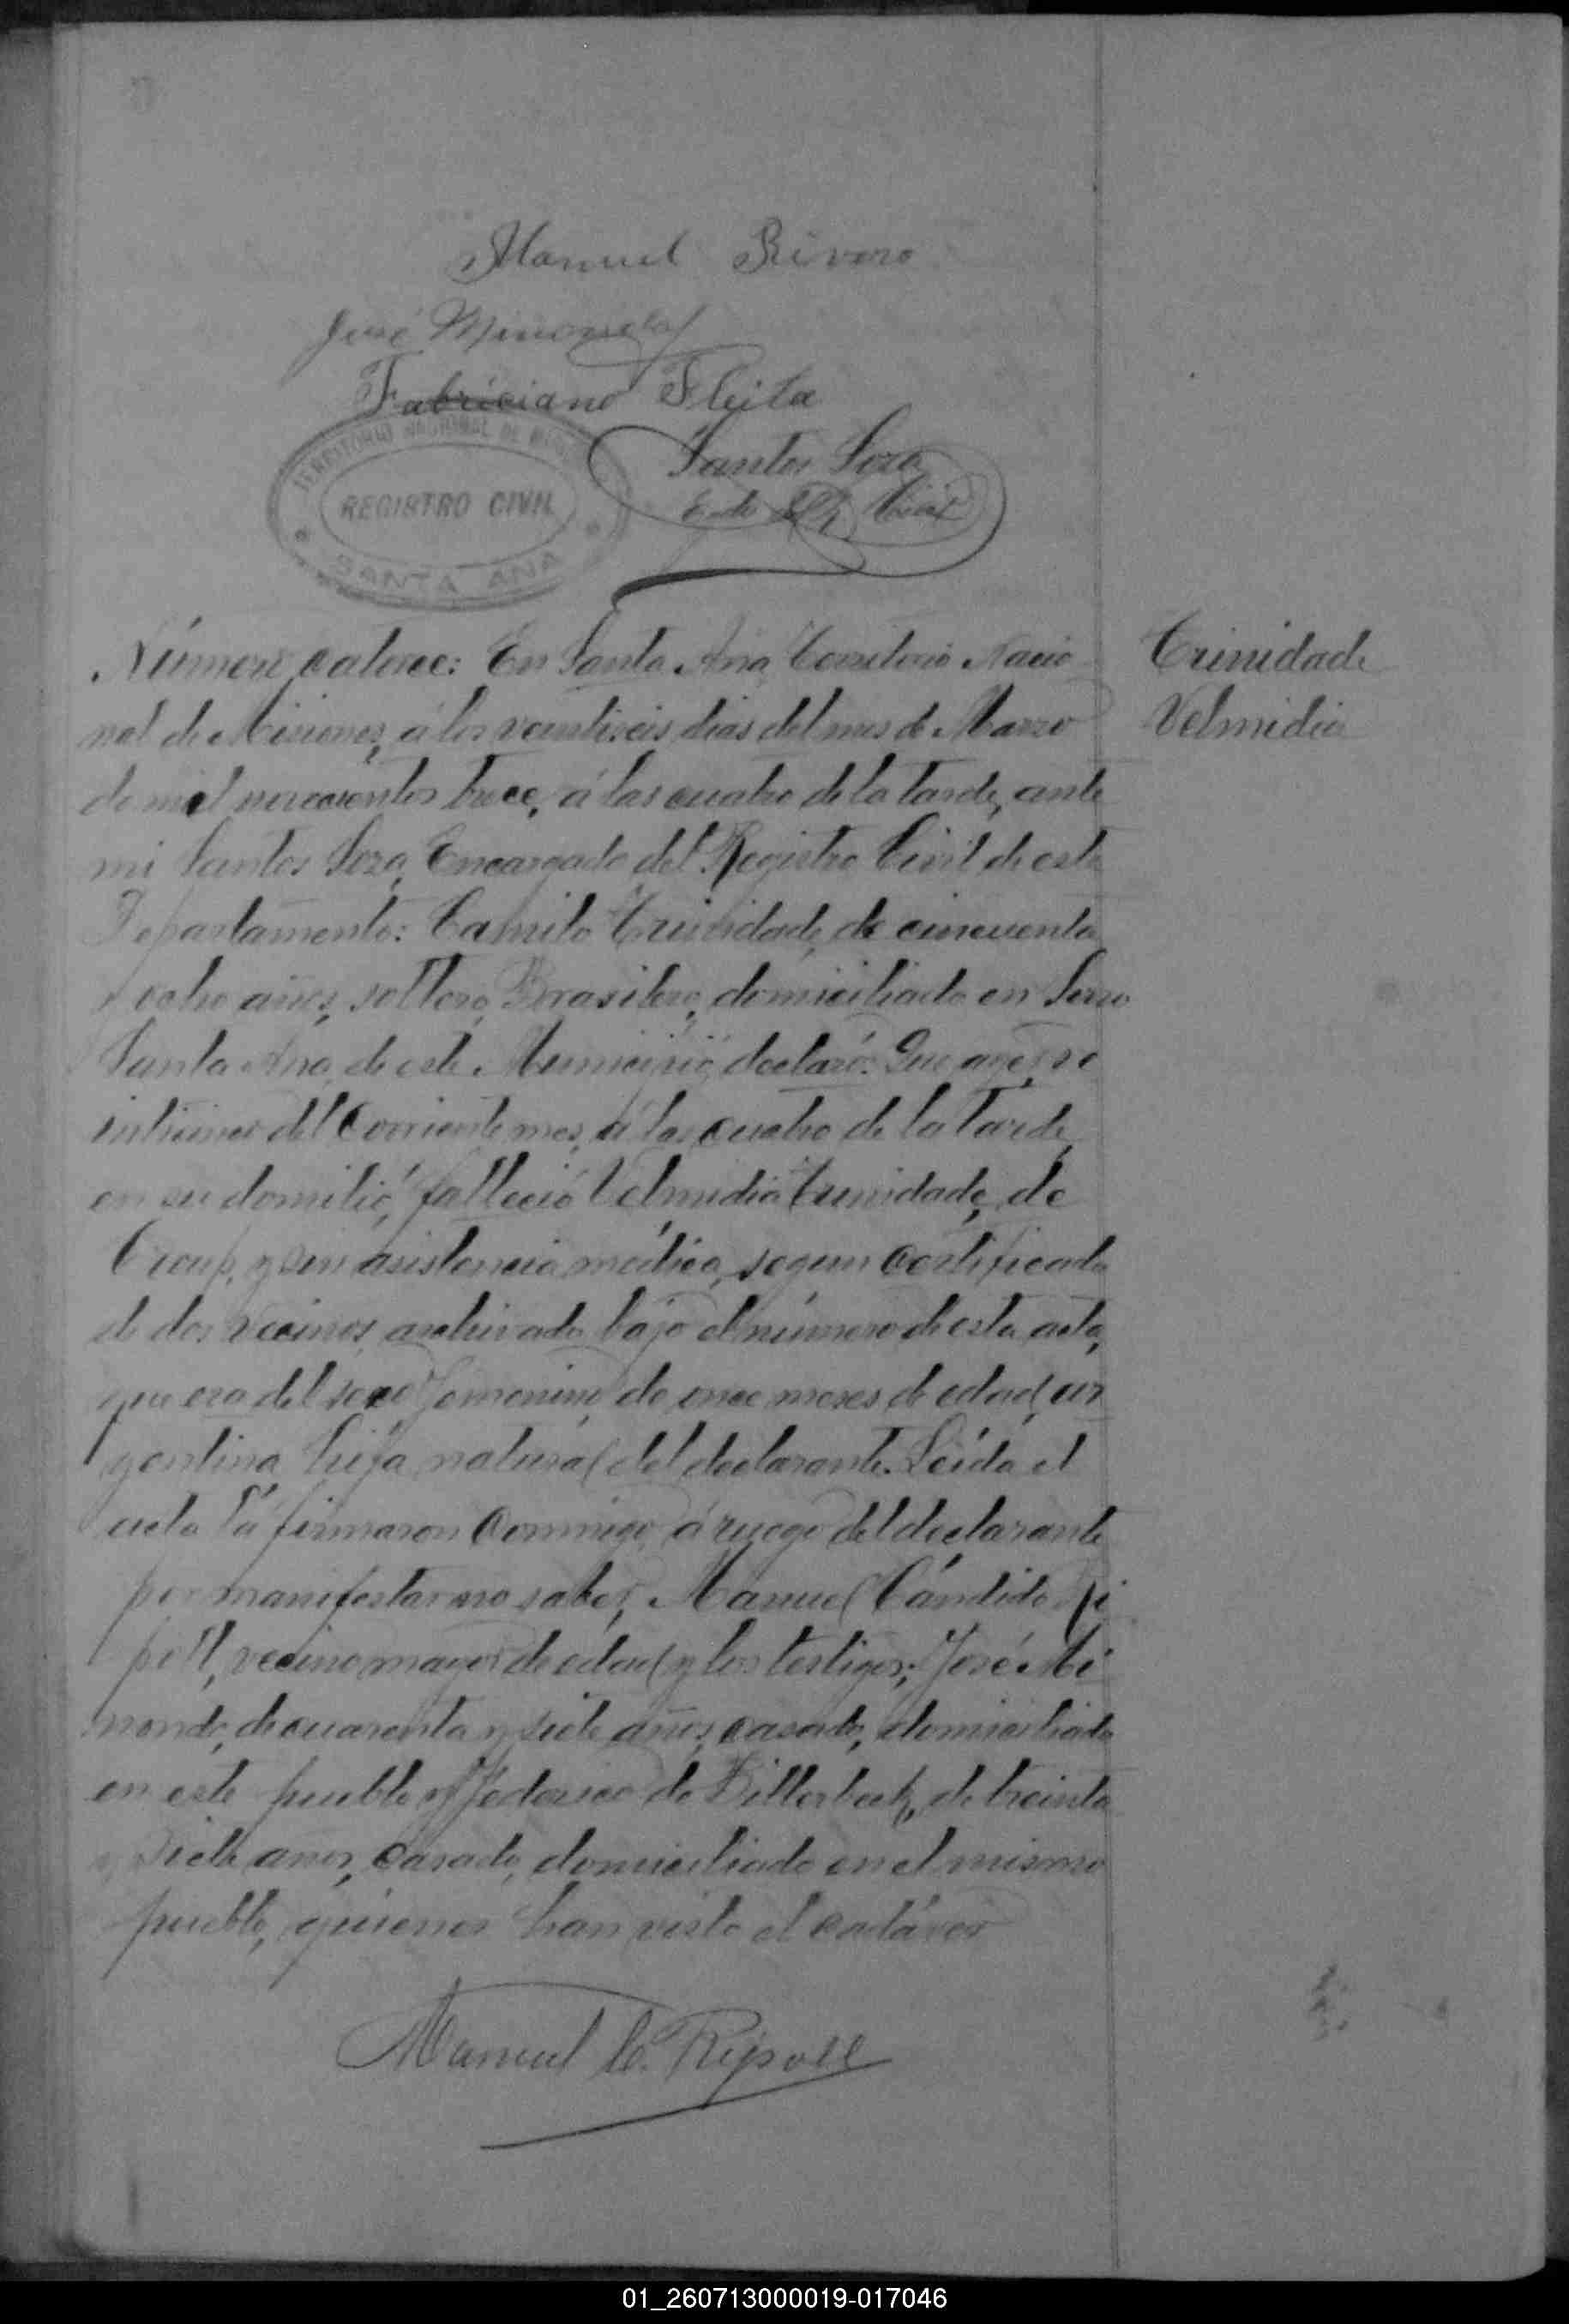 Manuel Rivero
José Minond
Fabriciano Fleita
TERRITORIO NACIONAL DE MISIONES
REGISTRO CIVIL
SANTA ANA
Santos Soza
E. de R. Civil
Número catorce: En Santa Ana, Territorio Nacio
nal de Misiones, á los veintiseis dias del mes de Marzo
de mil novecientos trece, á las cuatro de la tarde, ante
mi Santos Soza, Encargado del Registro Civil de este
Departamento: Camilo Trinidade, de cincuenta
y ocho años, soltero, Brasilero, domiciliado en Serro
Santa Ana, de este Municipio, declaró: Que ayer, ve
inticinco del corriente mes, á las cuatro de la tarde,
en su domilio, falleció Velmidia Trinidade, de
Croup, y sin asistencia médica, segun certificado
de dos vecinos, archivado bajo el número de esta acta,
que era del sexo femenino, de once meses de edad, ar
gentina, hija natural del declarante. Leida el
acta la firmaron conmigo, á ruego del declarante
por manifestar no saber, Manuel Cándido Ri
poll, vecino mayor de edad y los testigos; José Mi
nond, de cuarenta y siete años, casado, domiciliado
en este pueblo y Federico de Billerbeck, de treinta
y siete años, casado, domiciliado en el mismo
pueblo, quienes han visto el cadáver
Manuel C. Ripoll
Trinidade
Velmidia
01_260713000019-017046